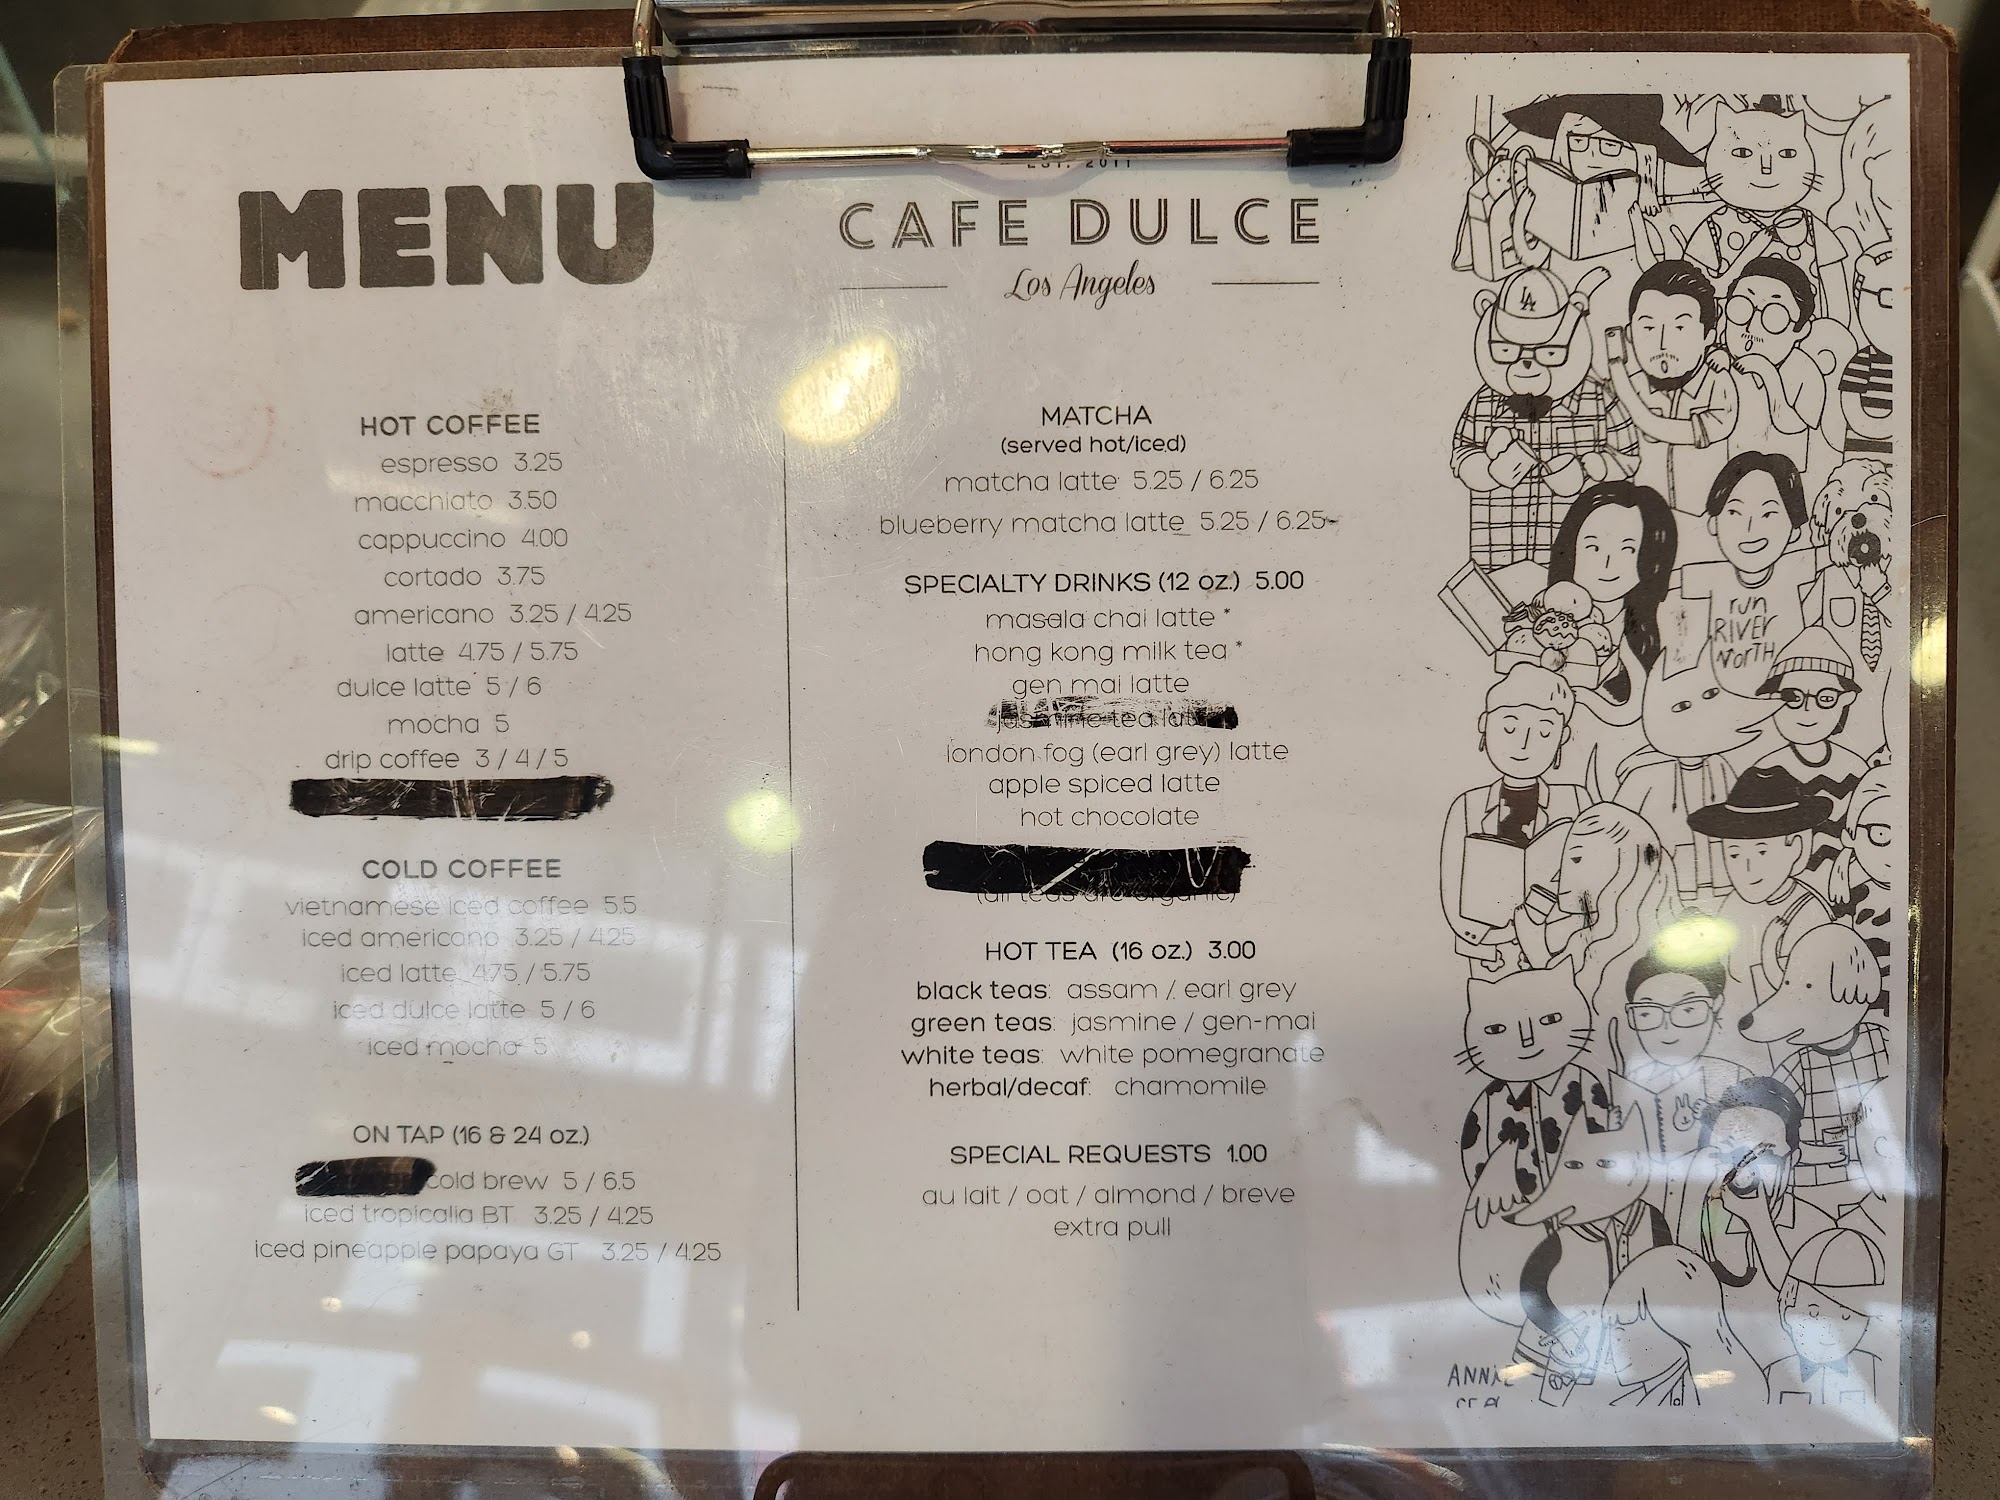 MENU
EST. 2011
CAFE DULCE
Los Angeles
HOT COFFEE
espresso 3.25
macchiato 3.50
cappuccino 4.00
cortado 3.75
americano 3.25 / 4.25
latte 4.75 / 5.75
dulce latte 5 / 6
mocha 5
drip coffee 3 / 4 / 5
COLD COFFEE
vietnamese iced coffee 5.5
iced americano 3.25 / 4.25
iced latte 4.75 / 5.75
iced dulce latte 5 / 6
iced mocha 5
ON TAP (16 & 24 oz.)
cold brew 5 / 6.5
iced tropicalia BT 3.25 / 4.25
iced pineapple papaya GT 3.25 / 4.25
MATCHA
(served hot/iced)
matcha latte 5.25 / 6.25
blueberry matcha latte 5.25 / 6.25
SPECIALTY DRINKS (12 oz.) 5.00
masala chai latte *
hong kong milk tea *
gen mai latte
jasmine tea
london fog (earl grey) latte
apple spiced latte
hot chocolate
(all teas are organic)
HOT TEA (16 oz.) 3.00
black teas: assam / earl grey
green teas: jasmine / gen-mai
white teas: white pomegranate
herbal/decaf: chamomile
SPECIAL REQUESTS 1.00
au lait / oat / almond / breve
extra pull
LA
run
RIVER
NORTH